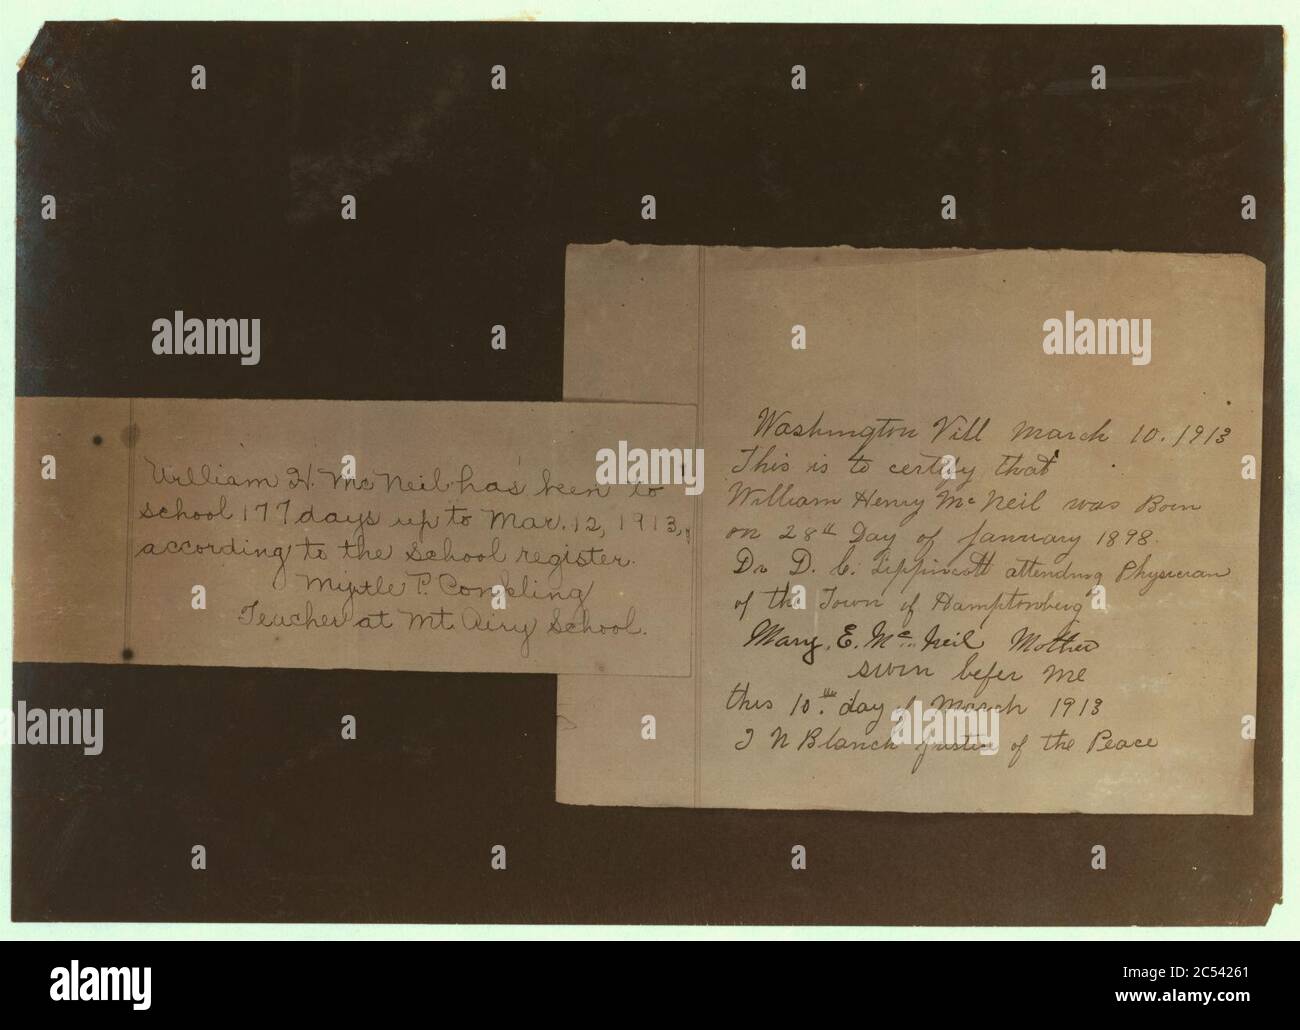 William H. McNeil has been to
school 177 days up to Mar. 12, 1913,
according to the School register.
Myrtle P. Conkling
Teacher at Mt. Airy School.
Washington Vill March 10. 1913
This is to certify that
William Henry McNeil was Born
on 28th Day of January 1898.
Dr D. C. Lippincott attending Physician
of the Town of Hamptonberg
Mary. E. Mc. Neil Mother
sworn befor me
this 10th. day of March 1913
J N Blanch Justice of the Peace
alamy
alamy
alamy
alamy
alamy
alamy
Image ID: 2C54261
www.alamy.com